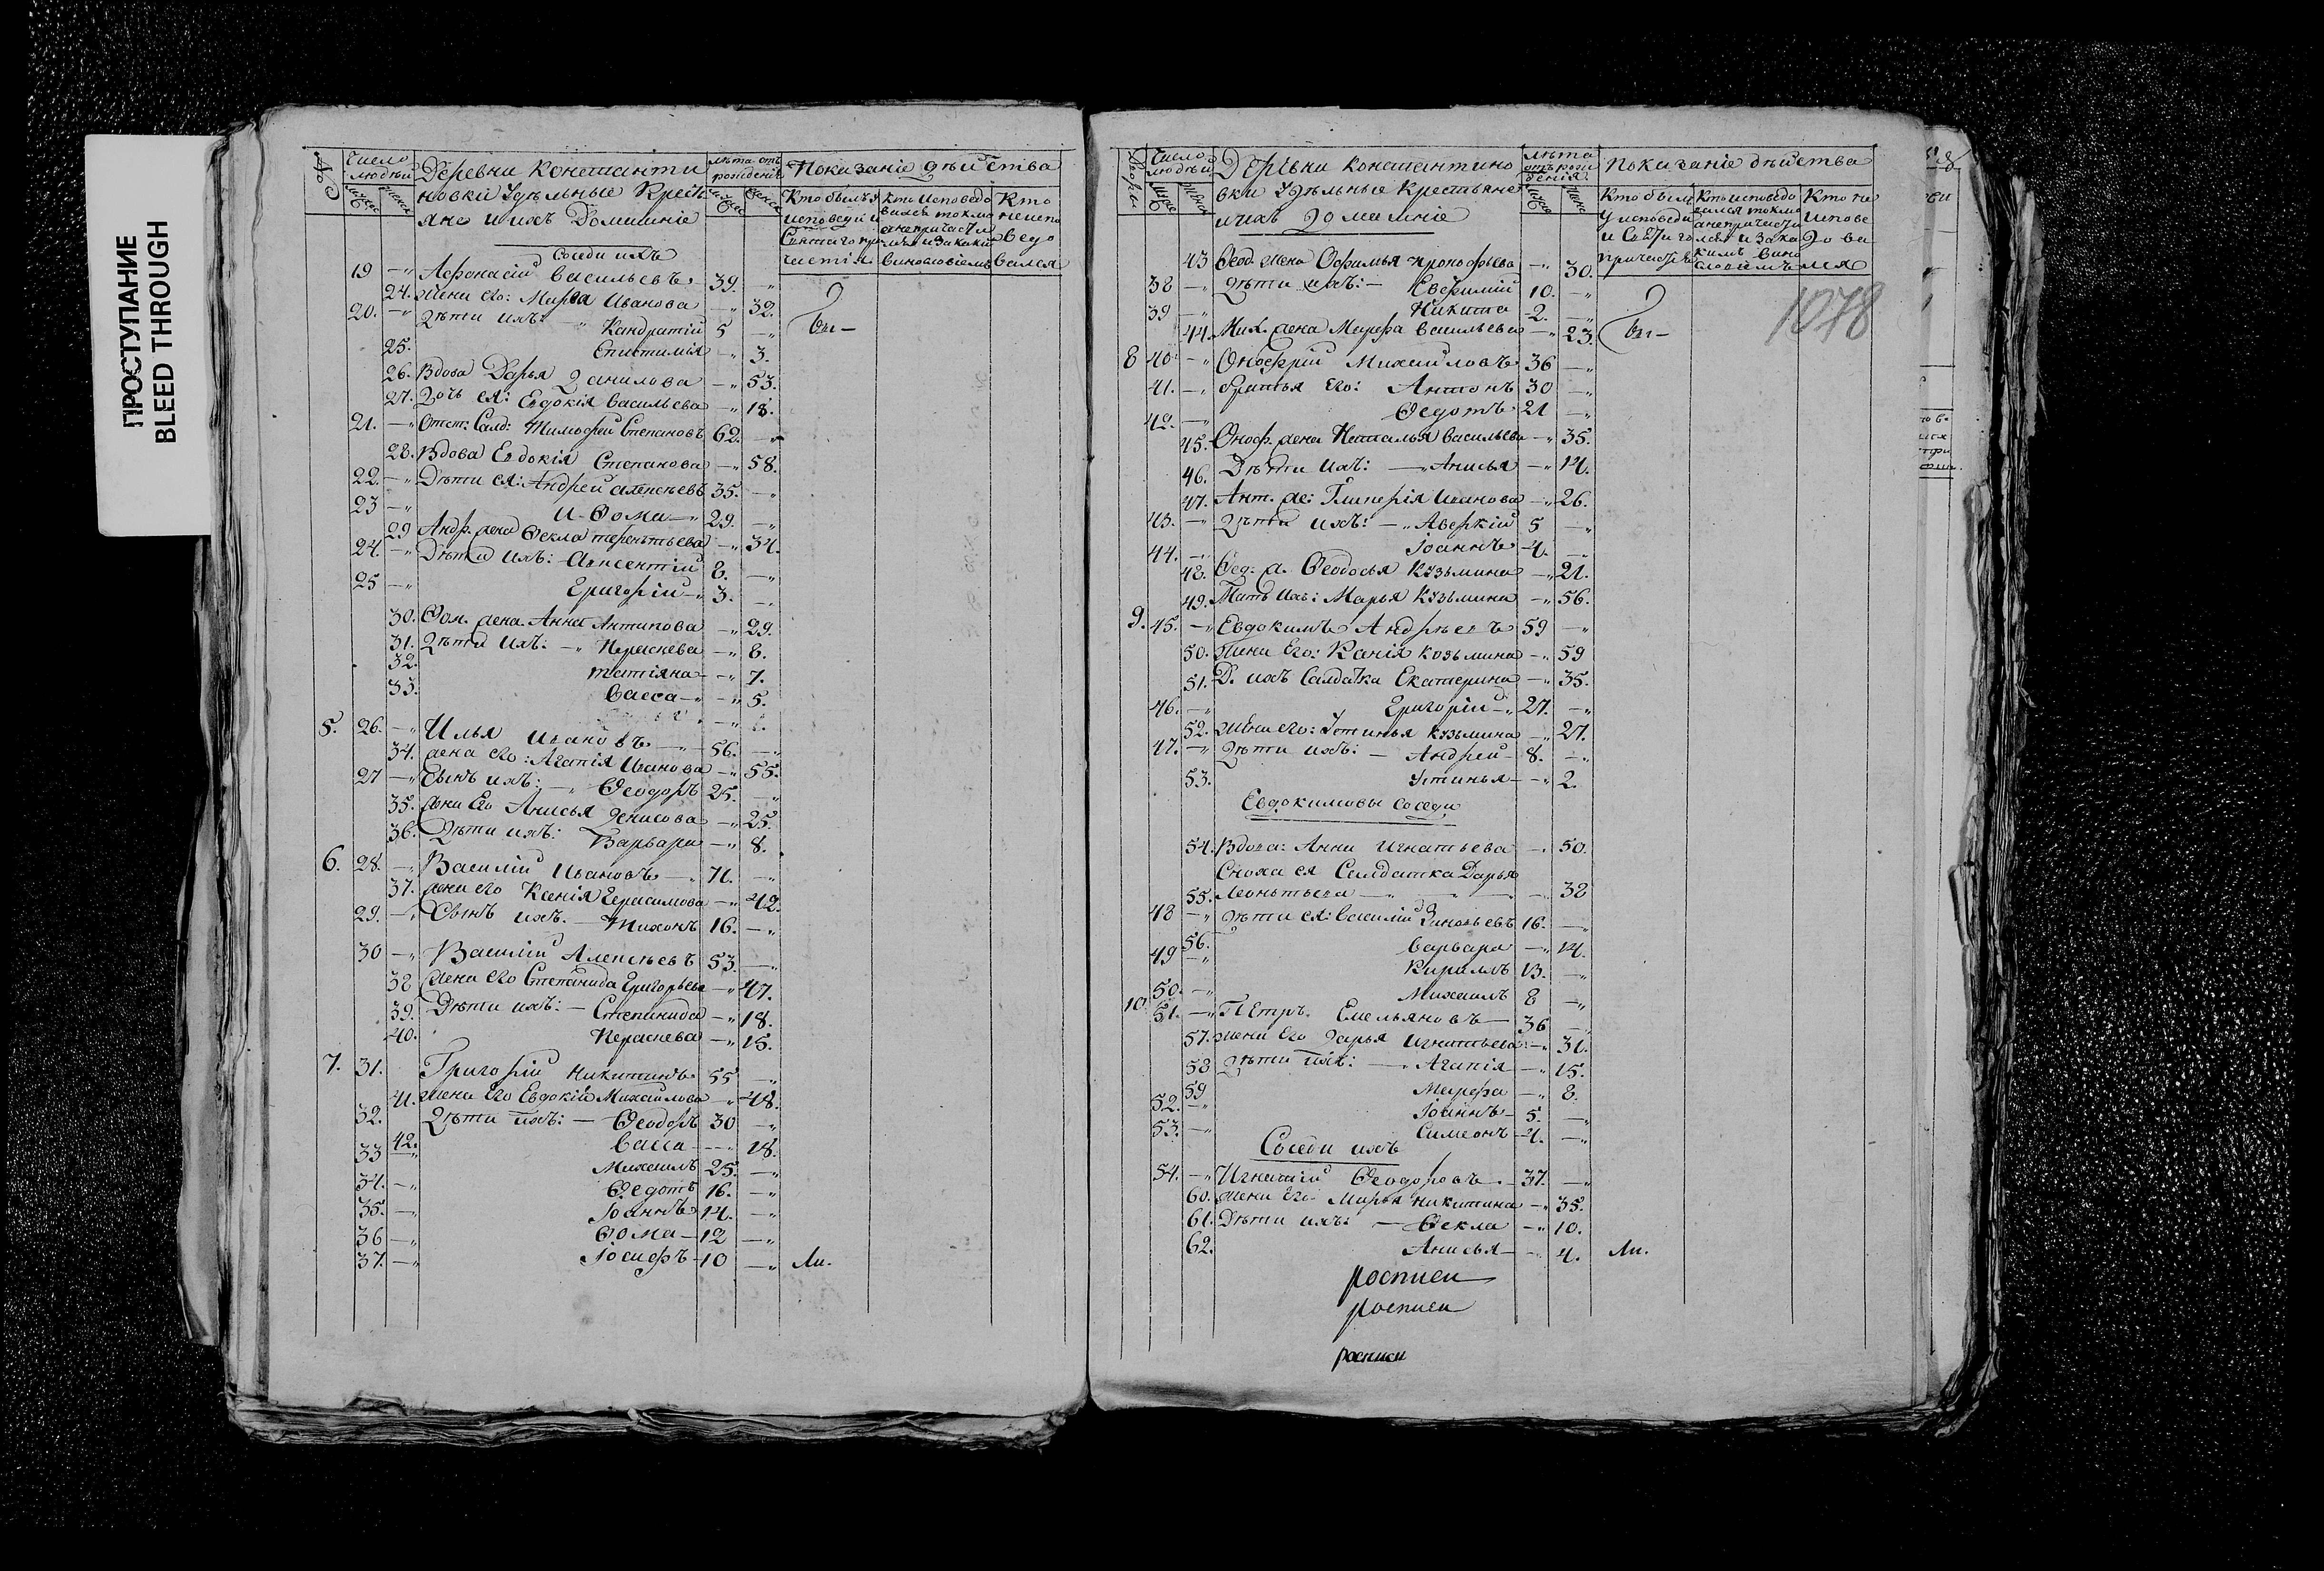 ПРОСТУПАНИЕ
BLEED THROUGH
№ Число людей Деревни Константи лѣта отъ рожденія Показаніе дѣйства
новки Удѣльные Крестъ
яне и ихъ Домашніе
Кто былъ у исповеди и Святаго причастія
Кто исповедовался токмо а не причастился и за какимъ винословіемъ
Кто не исповедовался
Соседи ихъ
19 —„ Афонасій Васильевъ 39. —„
24. Жена его: Марѳа Иванова —„ 32.
20. —„ Дѣти ихъ: —„ Кандратій 5 —„ бы—
25. Епистимія —„ 3.
26. Вдова Дарья Данилова —„ 53.
27. Дочь ея: Евдокія Васильева —„ 18.
21. —„ Отст: Салд: Тимофей Степановъ 62. —„
28. Вдова Евдокія Степанова —„ 58.
22. —„ Дѣти ея: Андрей Алексѣевъ 35. —„
23 —„ и Ѳома —„ 29. —„
29 Андр. жена Ѳекла терентьева —„ 34.
24. —„ Дѣти ихъ: Авксентій 8. —„
25 —„ Григорій —„ 3. —„
30. Ѳом. жена Анна Антипова —„ 29.
31. Дѣти ихъ: —„ Параскева —„ 8.
32. татіяна —„ 7.
33. Васса —„ —„ 5.
5. 26. —„ Илья Ивановъ —„ 56. —„
34. жена его: Агапія Иванова —„ 55.
27 —„ Сынъ ихъ: —„ Ѳеодоръ 25. —„
35. жена Его Анисья Денисова —„ 25.
36. Дѣти ихъ: Варвара —„ 8.
6. 28. —„ Василій Ивановъ —„ 71. —„
37. жена его Ксенія Герасимова —„ 42.
29. —„ Сынъ ихъ. — Тихонъ 16. —„
30 —„ Василій Алексѣевъ 53. —„
38 Жена его Степанида Григорьева —„ 47.
39. Дѣти ихъ: — Степанида —„ 18.
40. Параскева —„ 15.
7. 31. Григорій Никитинъ 55 —„
41. Жена Его Евдокія Михайлова —„ 48.
32. Дѣти ихъ: — Ѳеодоръ 30 —„
42. Васса —„ 18.
33 —„ Михаилъ 25. —„
34. —„ Ѳедотъ 16. —„
35. —„ Іоаннъ 14. —„
36 —„ Ѳома — 12 —„
37. —„ Іосифъ — 10 —„ ли.
Дворы Число людей Деревни Константино лѣта отъ рожденія Показаніе дѣйства
вки Удѣльные Крестьяне
и ихъ домашніе
Кто былъ у исповеди и Святаго причастія
Кто исповедовался токмо а не причастился и за какимъ винословіемъ
Кто не исповедовался
43 Ѳеод. жена Офимья Прокофьева —„ 30.
38 —„ Дѣти ихъ: — Евфимій 10. —„
1078
39 —„ Никита 2. —„
44. Мих. жена Марфа Васильева —„ 23. бы—
8 40 —„ Онофрій Михайловъ 36 —„
41. —„ братья Его: Антонъ 30 —„
42. —„ Ѳедотъ 21 —„
45. Оноф. жена Наталья Васильева —„ 35.
46. Дѣти ихъ: —„ Анисья —„ 14.
47. Ант. же: Гликерія Иванова —„ 26.
43. —„ Дѣти ихъ: —„ Аверкій 5 —„
44. —„ Іоаннъ 4. —„
48. Ѳед. ж. Ѳеодосья Кузьмина —„ 21.
49. Мать ихъ: Марья Кузьмина —„ 56.
9. 45. —„ Евдокимъ Андрѣевъ 59 —„
50. Жена Его: Ксенія козьмина —„ 59
51. Д. ихъ Салдатка Екатерина —„ 35.
46. —„ Григорій —„ 27. —„
52. Жена его: Устинья Кузьмина —„ 27.
47. —„ Дѣти ихъ: — Андрей — 8. —„
53. Устинья —„ 2.
Евдокимовы соседи
54. Вдова: Анна Игнатьева —„ 50.
Сноха ея Салдатка Дарья
55. Леонтьева —„ 32
48 —„ Дѣти ея: Василій Зиновьевъ 16. —„
56. Варвара —„ 14.
49 —„ Кирилъ 13. —„
50. —„ Михаилъ 8 —„
10 51. —„ Петръ Емельяновъ — 36 —„
57. Жена Его Дарья Игнатьева —„ 31.
58 Дѣти ихъ: —„ Агапія —„ 15.
59 Марфа —„ 8.
52. —„ Іоаннъ — 5. —„
53. —„ Симеонъ — 4. —„
Соседи ихъ
54. —„ Игнатій Ѳеодоровъ — 37. —„
60. Жена Его Марья Никитина —„ 35.
61. Дѣти ихъ: — Ѳекла —„ 10.
62. Анисья —„ 4. ли.
росписи
росписи
росписи